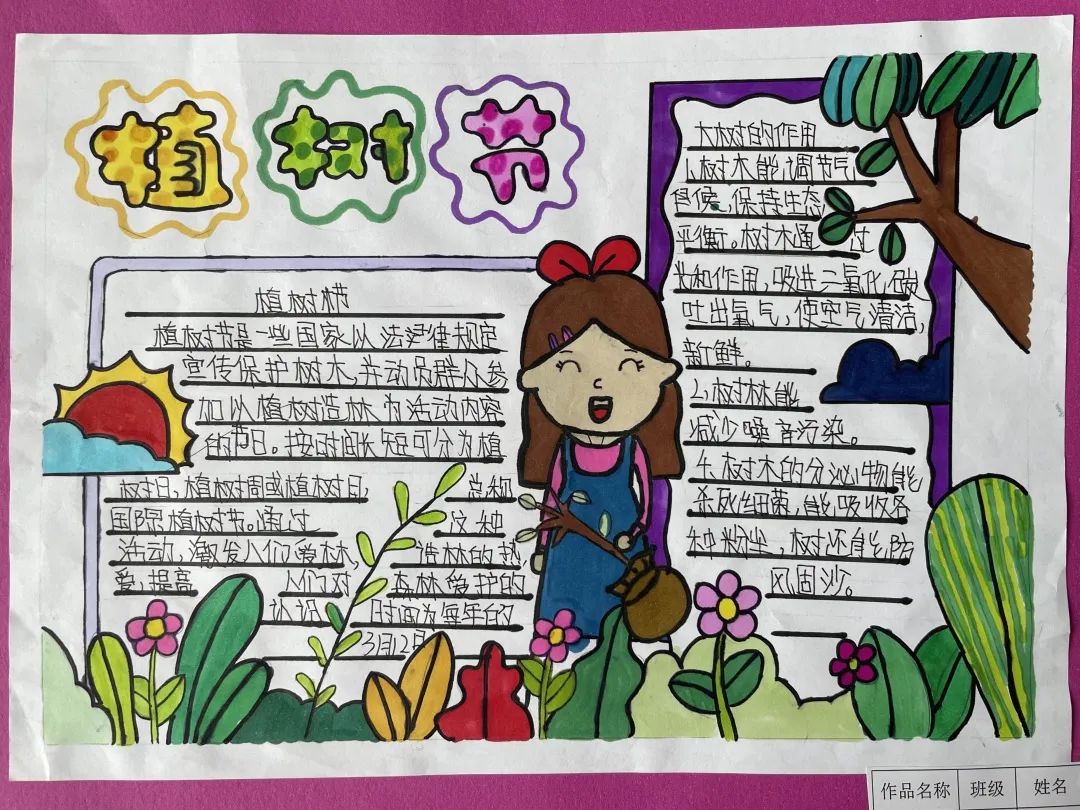 植树节
植树节
植树节是一些国家以法律规定
宣传保护树木,并动员群众参
加以植树造林为活动内容
的节日。按时间长短可分为植
树日,植树周或植树月 总和
国际植树节。通过 这种
活动,激发人们爱林, 造林的热
爱,提高 人们对 森林爱护的
认识 时间为每年的
3月12号
大树的作用
1.树木能调节气
候,保持生态
平衡。树木通 过
光和作用,吸进二氧化碳
吐出氧气,使空气清洁,
新鲜。
2.树林能
减少噪音污染。
4.树木的分泌物能
杀死细菌,能吸收各
种粉尘,树还能防
风固沙。
作品名称 班级 姓名